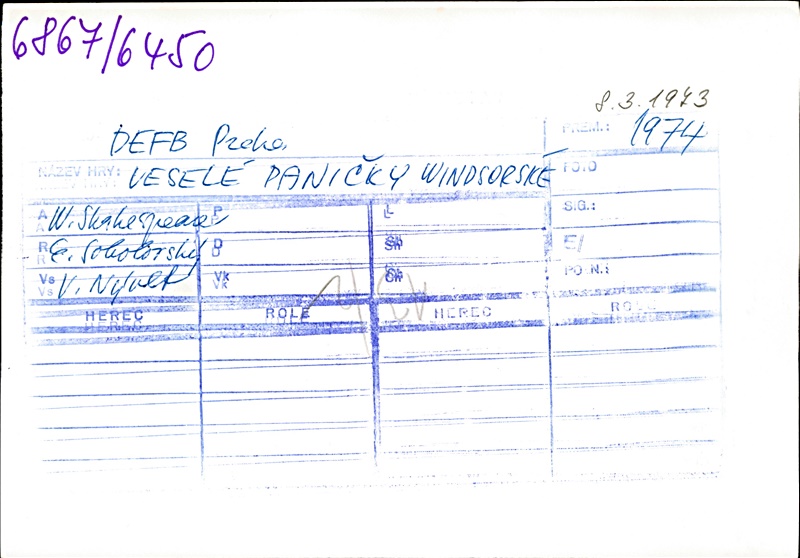 6867/6450
8.3.1973
PREM.: 1974
DEFB Praha
NÁZEV HRY: VESELÉ PANIČKY WINDSORSKÉ
FOTO
A W. Shakespeare P L SIG.:
R E. Sokolovský D Sh E/
Vs V. Nývlt Vk Ch PO.N.:
HEREC ROLE HEREC ROLE